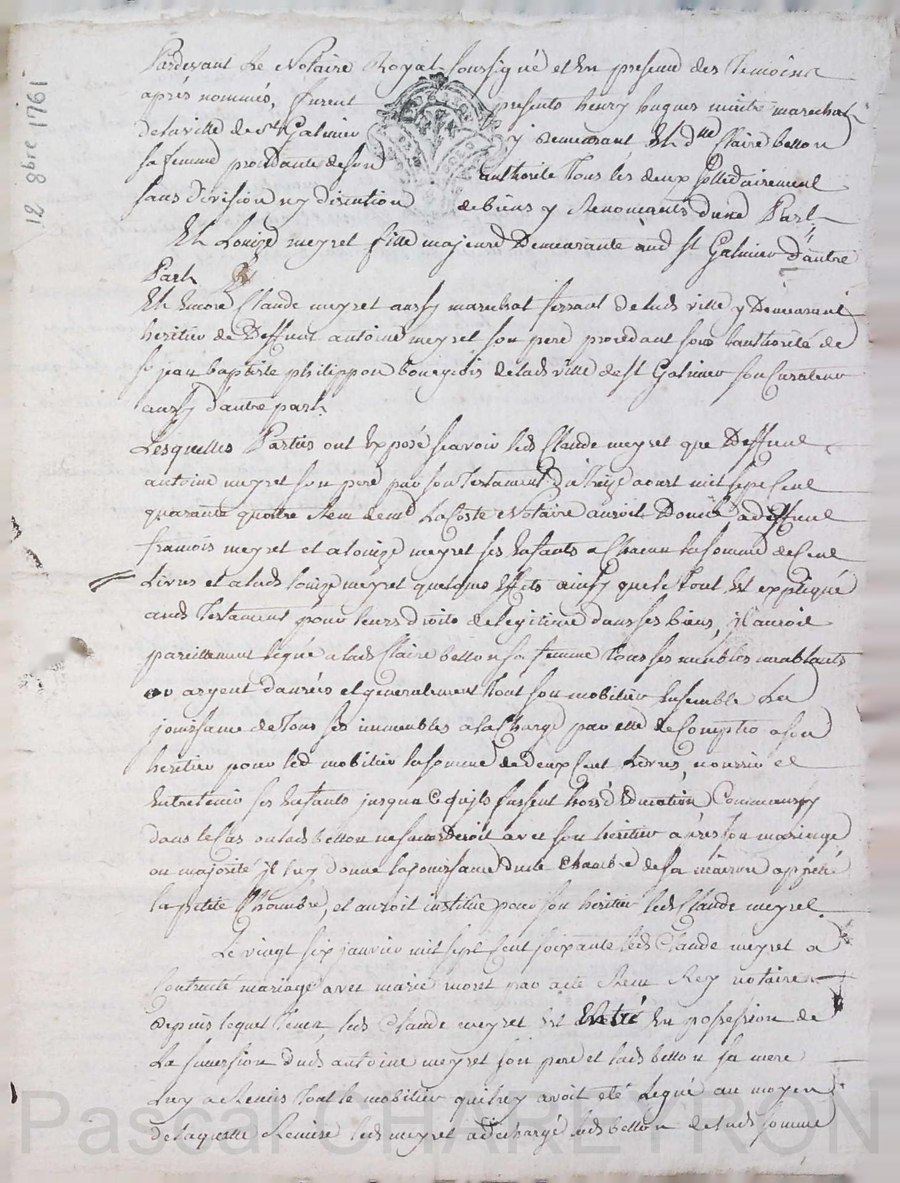 12 8bre 1761
Pardevant Le Notaire Royal soussigné et En presence des Temoins
aprés nommés, furent presents henry hugues maitre marechal
de la ville de St Galmier y demeurant Et dlle Claire betton
sa femme procédante de son authorité Tous les deux sollidairement
sans division ny discution de biens y Renoncants dune Part
Et Louize meyret fille majeure Demeurante aud St Galmier d'autre
Part
Et Encore Claude meyret aussy marechal ferrant de lad ville y Demeurant
heritier de Deffunt antoine meyret son pere procédant sous l'authorité de
sr jean baptiste philippon bourgeois de lad ville de St Galmier son Curateur
aussy d'autre part
Lesquelles Parties ont Exposé scavoir led Claude meyret que Deffunt
antoine meyret son pere par son Testament du treize aoust mil sept Cent
quarante quatre Reçu Lacoste Notaire auroit Donné a deffunt
francois meyret et a Louize meyret ses Enfants a Chacun la somme de Cent
Livres et a lad Louize meyret quelques Effets ainsy que le tout Est expliqué
aud Testament pour leurs droits de legitime dans ses biens, il auroit
pareillement légué a lad Claire betton sa femme tous ses meubles meublants
or argent danrées et generalement tout son mobilier Ensemble La
jouissance de Tous ses immeubles a la Charge par elle de Compter a son
heritier pour led mobilier la somme de deux Cent Livres, nourrir et
Entretenir ses Enfants jusqua ce quils fussent hors d'Education Comme aussy
dans le Cas ou lad betton ne saccorderoit avec son heritier aprés son mariage
ou majorité il luy donne la jouissance dune Chambre de sa maison appelée
la petite Chambre, et auroit institué pour son heritier led Claude meyret
Le vingt six janvier mil sept Cent soixante led Claude meyret a
Contracté mariage avec marie moret par acte Reçu Rey notaire
Depuis lequel tems led Claude meyret Est Entré En possession de
La succession dud antoine meyret son pere et lad betton sa mere
Luy a Remis Tout le mobilier qui luy avoit été Legué au moyen
de laquelle Remise led meyret a dechargé lad betton de lad somme
Pascal CHAREYRON